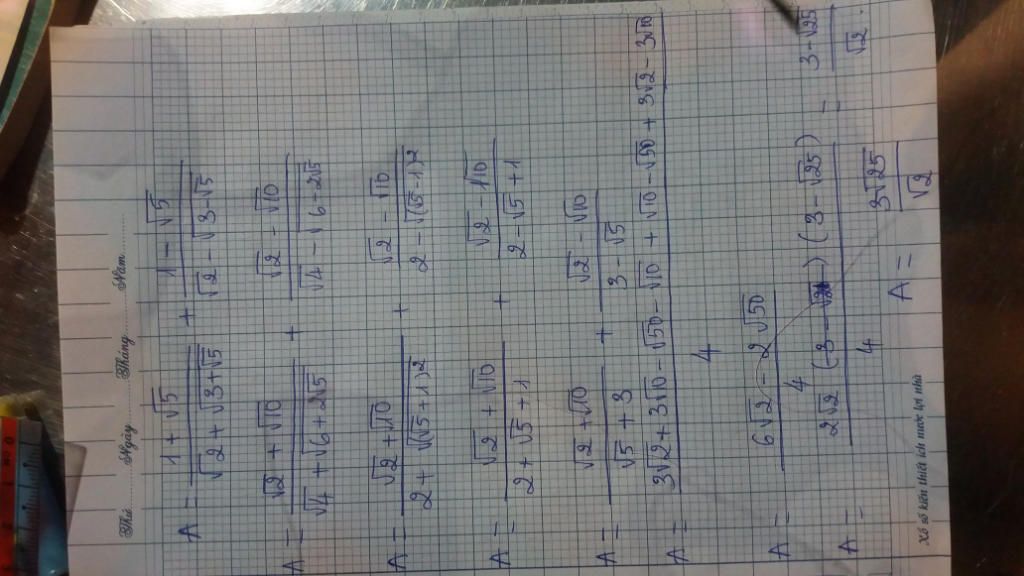 Thứ............Ngày............Tháng............Năm............
A = \frac{1+\sqrt{5}}{\sqrt{2}+\sqrt{3+\sqrt{5}}} + \frac{1-\sqrt{5}}{\sqrt{2}-\sqrt{3-\sqrt{5}}}
A = \frac{\sqrt{2}+\sqrt{10}}{\sqrt{4}+\sqrt{6+2\sqrt{5}}} + \frac{\sqrt{2}-\sqrt{10}}{\sqrt{4}-\sqrt{6-2\sqrt{5}}}
A = \frac{\sqrt{2}+\sqrt{10}}{2+\sqrt{(\sqrt{5}+1)^2}} + \frac{\sqrt{2}-\sqrt{10}}{2-\sqrt{(\sqrt{5}-1)^2}}
A = \frac{\sqrt{2}+\sqrt{10}}{2+\sqrt{5}+1} + \frac{\sqrt{2}-\sqrt{10}}{2-\sqrt{5}+1}
A = \frac{\sqrt{2}+\sqrt{10}}{\sqrt{5}+3} + \frac{\sqrt{2}-\sqrt{10}}{3-\sqrt{5}}
A = \frac{3\sqrt{2}+3\sqrt{10}-\sqrt{50}-\sqrt{10}+\sqrt{10}-\sqrt{50}+3\sqrt{2}-3\sqrt{10}}{4}
A = \frac{6\sqrt{2}-2\sqrt{50}}{4}
A = \frac{2\sqrt{2}(3-\sqrt{25})}{4} = \frac{3-\sqrt{25}}{\sqrt{2}}.
A = \frac{3\sqrt{25}}{\sqrt{2}}